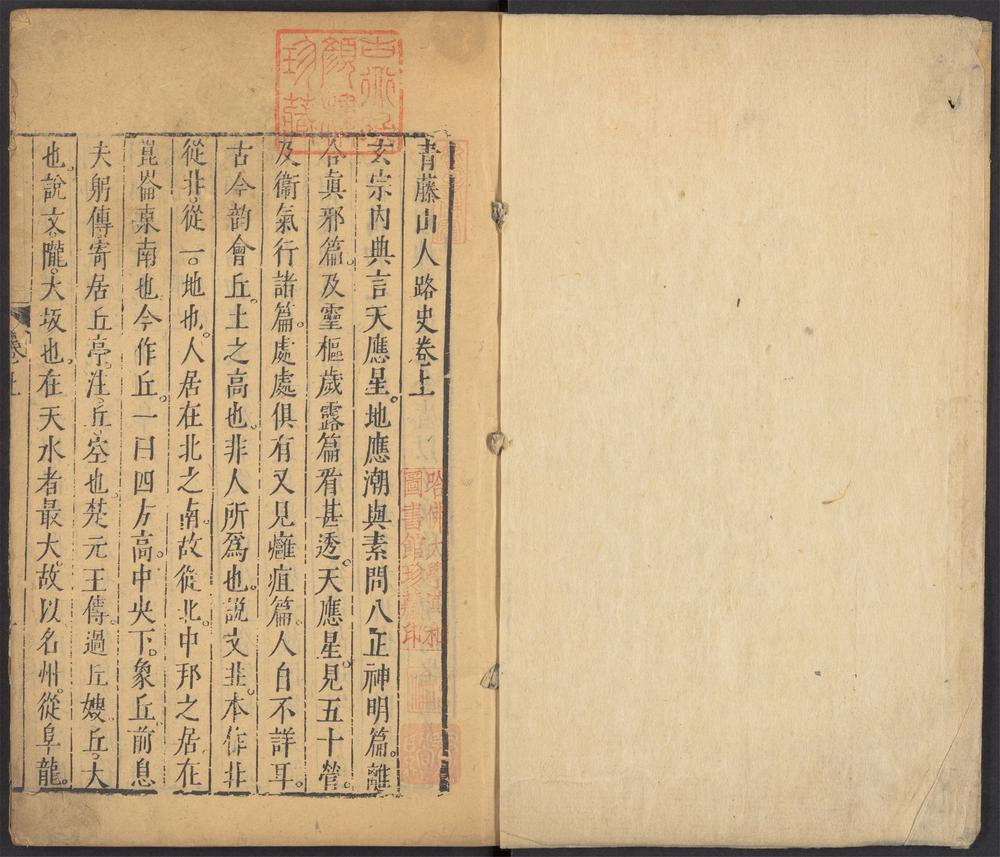 青藤山人路史卷上
玄宗內典言天應星。地應潮與素問八正神明篇。離
合眞邪篇。及靈樞歲露篇看甚透。天應星。見五十營。
及衞氣行諸篇。處處俱有又見癰疽篇。人自不詳耳。
古今韵會丘。土之高也。非人所爲也。説文丠。本作丠
從北。從一。地也。人居在北之南。故從北。中邦之居在
崑崙東南也今作丘。一曰四方高。中央下。象丘前息
夫躬傳寄居丘亭。注。丘。空也。楚元王傳。過丘嫂。丘。大
也。說文。隴。大坂也。在天水者最大。故以名州。從阜龍。
卷上
哈佛大學漢和
圖書館珍藏印
珍藏